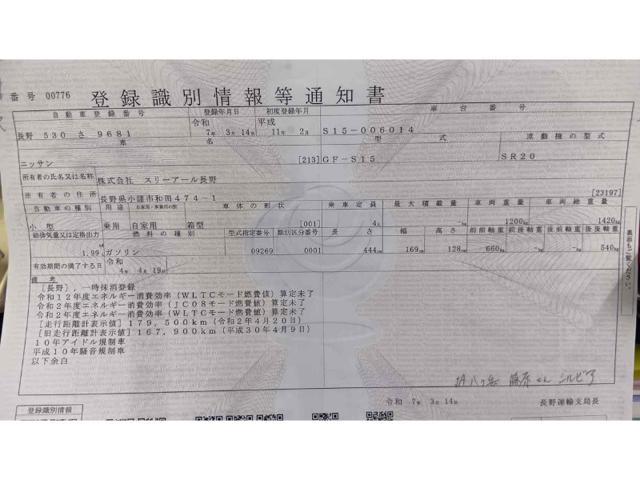 番号 00776
登録識別情報等通知書
自動車登録番号 登録年月日 初度登録年月 車台番号
長野 530 さ 9681 令和 7年 3月14日 平成 11年 2月 S15-006014
車名 型式 原動機の型式
ニッサン [213] GF-S15 SR20
所有者の氏名又は名称 株式会社 スリーアール長野
所有者の住所 長野県小諸市和田474-1 [23197]
自動車の種別 用途 自家用・事業用の別 車体の形状 乗車定員 最大積載量 車両重量 車両総重量
小型 乗用 自家用 箱型 [001] 4人 -kg 1200kg 1420kg
総排気量又は定格出力 燃料の種類 型式指定番号 類別区分番号 長さ 幅 高さ 前前軸重 前後軸重 後前軸重 後後軸重
1.99 ガソリン 09269 0001 444cm 169cm 128cm 660kg -kg -kg 540kg
有効期間の満了する日 令和 4年 4月19日
備考
[長野],一時抹消登録
令和12年度エネルギー消費効率(WLTCモード燃費値)算定未了
令和2年度エネルギー消費効率(JC08モード燃費値)算定未了
令和2年度エネルギー消費効率(WLTCモード燃費値)算定未了
[走行距離計表示値]179,500km(令和2年4月20日)
[旧走行距離計表示値]167,900km(平成30年4月9日)
10年アイドル規制車
平成10年騒音規制車
以下余白
シルビア
令和 7年 3月14日 長野運輸支局長
登録識別情報